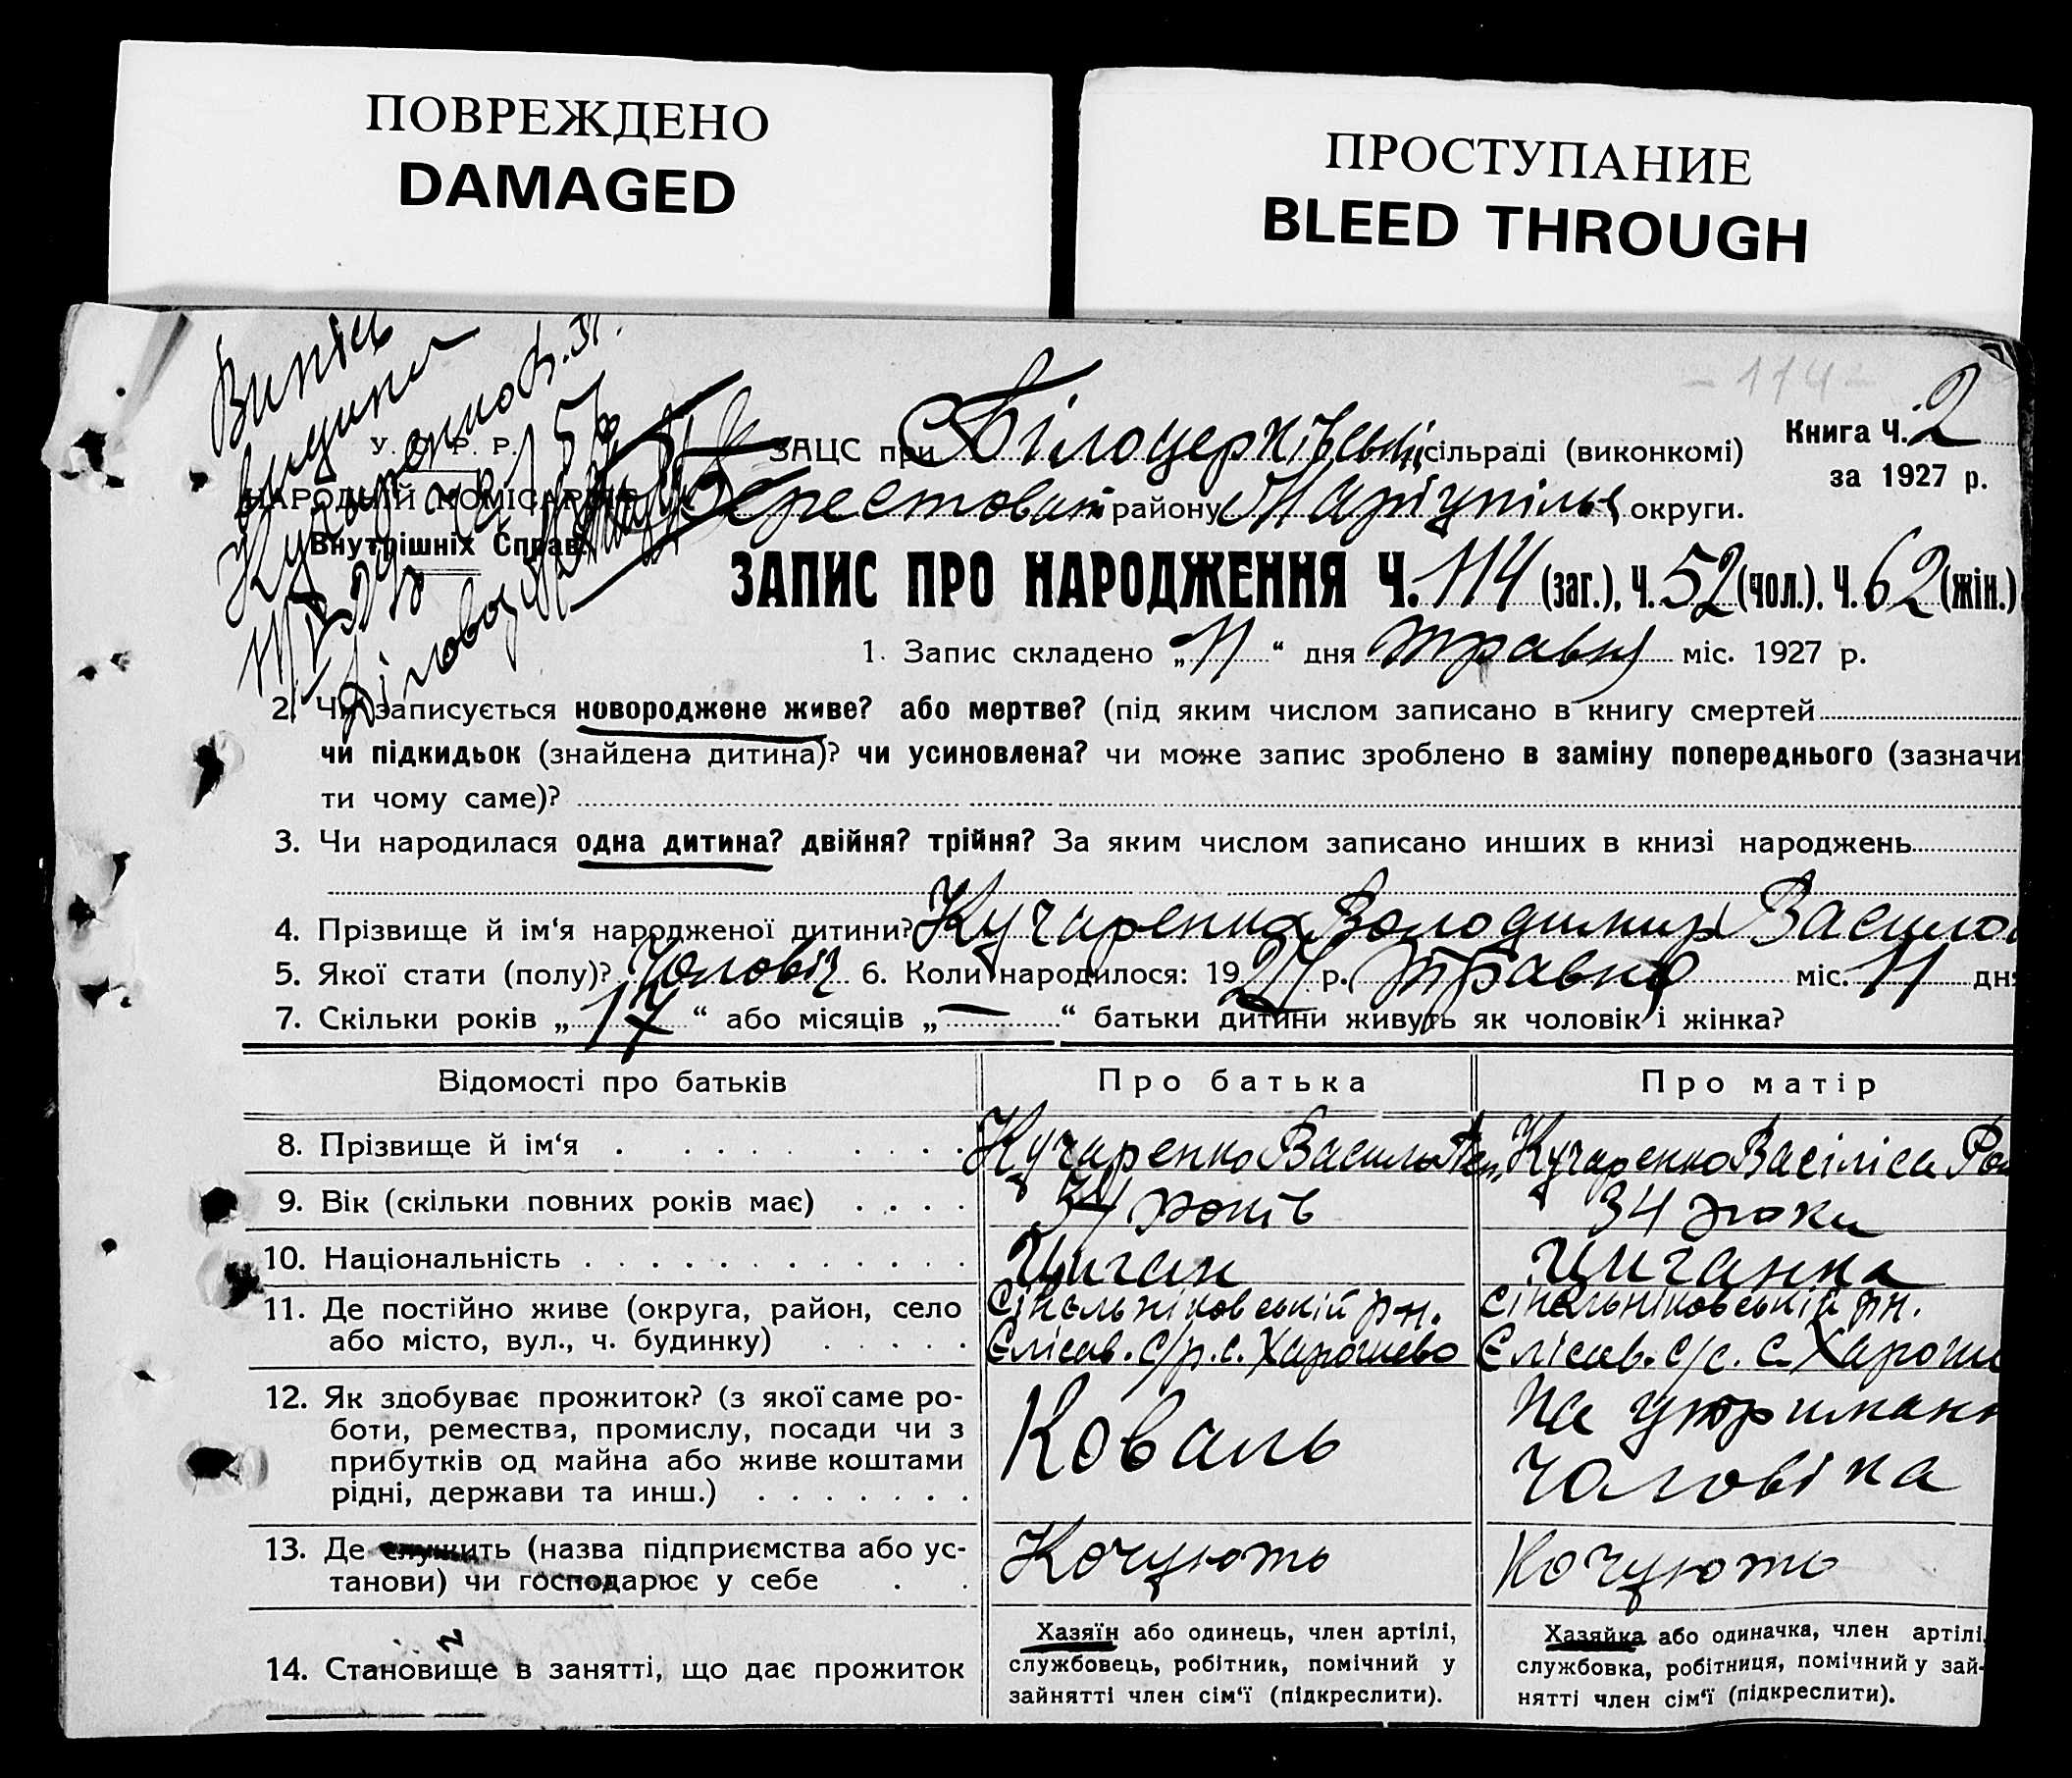 ПОВРЕЖДЕНО
DAMAGED
ПРОСТУПАНИЕ
BLEED THROUGH
- 114 -
Книга Ч. 2
за 1927 р.
У. С. Р. Р.
НАРОДНІЙ КОМІСАРІЯТ
Внутрішніх Справ.
ЗАЦС при Білоцерківській сільраді (виконкомі)
Берестован району Маріупільс округи.
ЗАПИС ПРО НАРОДЖЕННЯ Ч. 114 (заг.), Ч. 52 (чол.). Ч. 62 (жін.)
1. Запис складено „11“ дня травня міс. 1927 р.
2. Чи записується новороджене живе? або мертве? (під яким числом записано в книгу смертей
чи підкидьок (знайдена дитина)? чи усиновлена? чи може запис зроблено в заміну попереднього (зазначи
ти чому саме)?
3. Чи народилася одна дитина? двійня? трійня? За яким числом записано инших в книзі народжень
4. Прізвище й ім‘я народженої дитини? Кучаренко Володимир Василов
5. Якої стати (полу)? Чоловіч 6. Коли народилося: 1927 р. травня міс. 11 дня
7. Скільки років „17“ або місяців „—“ батьки дитини живуть як чоловік і жінка?
Відомості про батьків
Про батька
Про матір
8. Прізвище й ім‘я
Кучаренко Василь
Кучаренко Васіліса Ро
9. Вік (скільки повних років має)
років
34 роки
10. Національність
Циган
Циганка
11. Де постійно живе (округа, район, село
або місто, вул., ч. будинку)
Сінельніковській рн.
Єлісав. с/р. с. Харошево
Сінельніковській рн.
Єлісав. с/с. с. Хароше
12. Як здобуває прожиток? (з якої саме ро-
боти, ремества, промислу, посади чи з
прибутків од майна або живе коштами
рідні, держави та инш.)
Коваль
На утриманн
чоловіка
13. Де служить (назва підприємства або ус-
танови) чи господарює у себе
Кочують
Кочують
14. Становище в занятті, що дає прожиток
Хазяїн або одинець, член артілі,
службовець, робітник, помічний у
зайнятті член сім‘ї (підкреслити).
Хазяйка або одиначка, член артілі,
службовка, робітниця, помічний у зай-
нятті член сім‘ї (підкреслити).